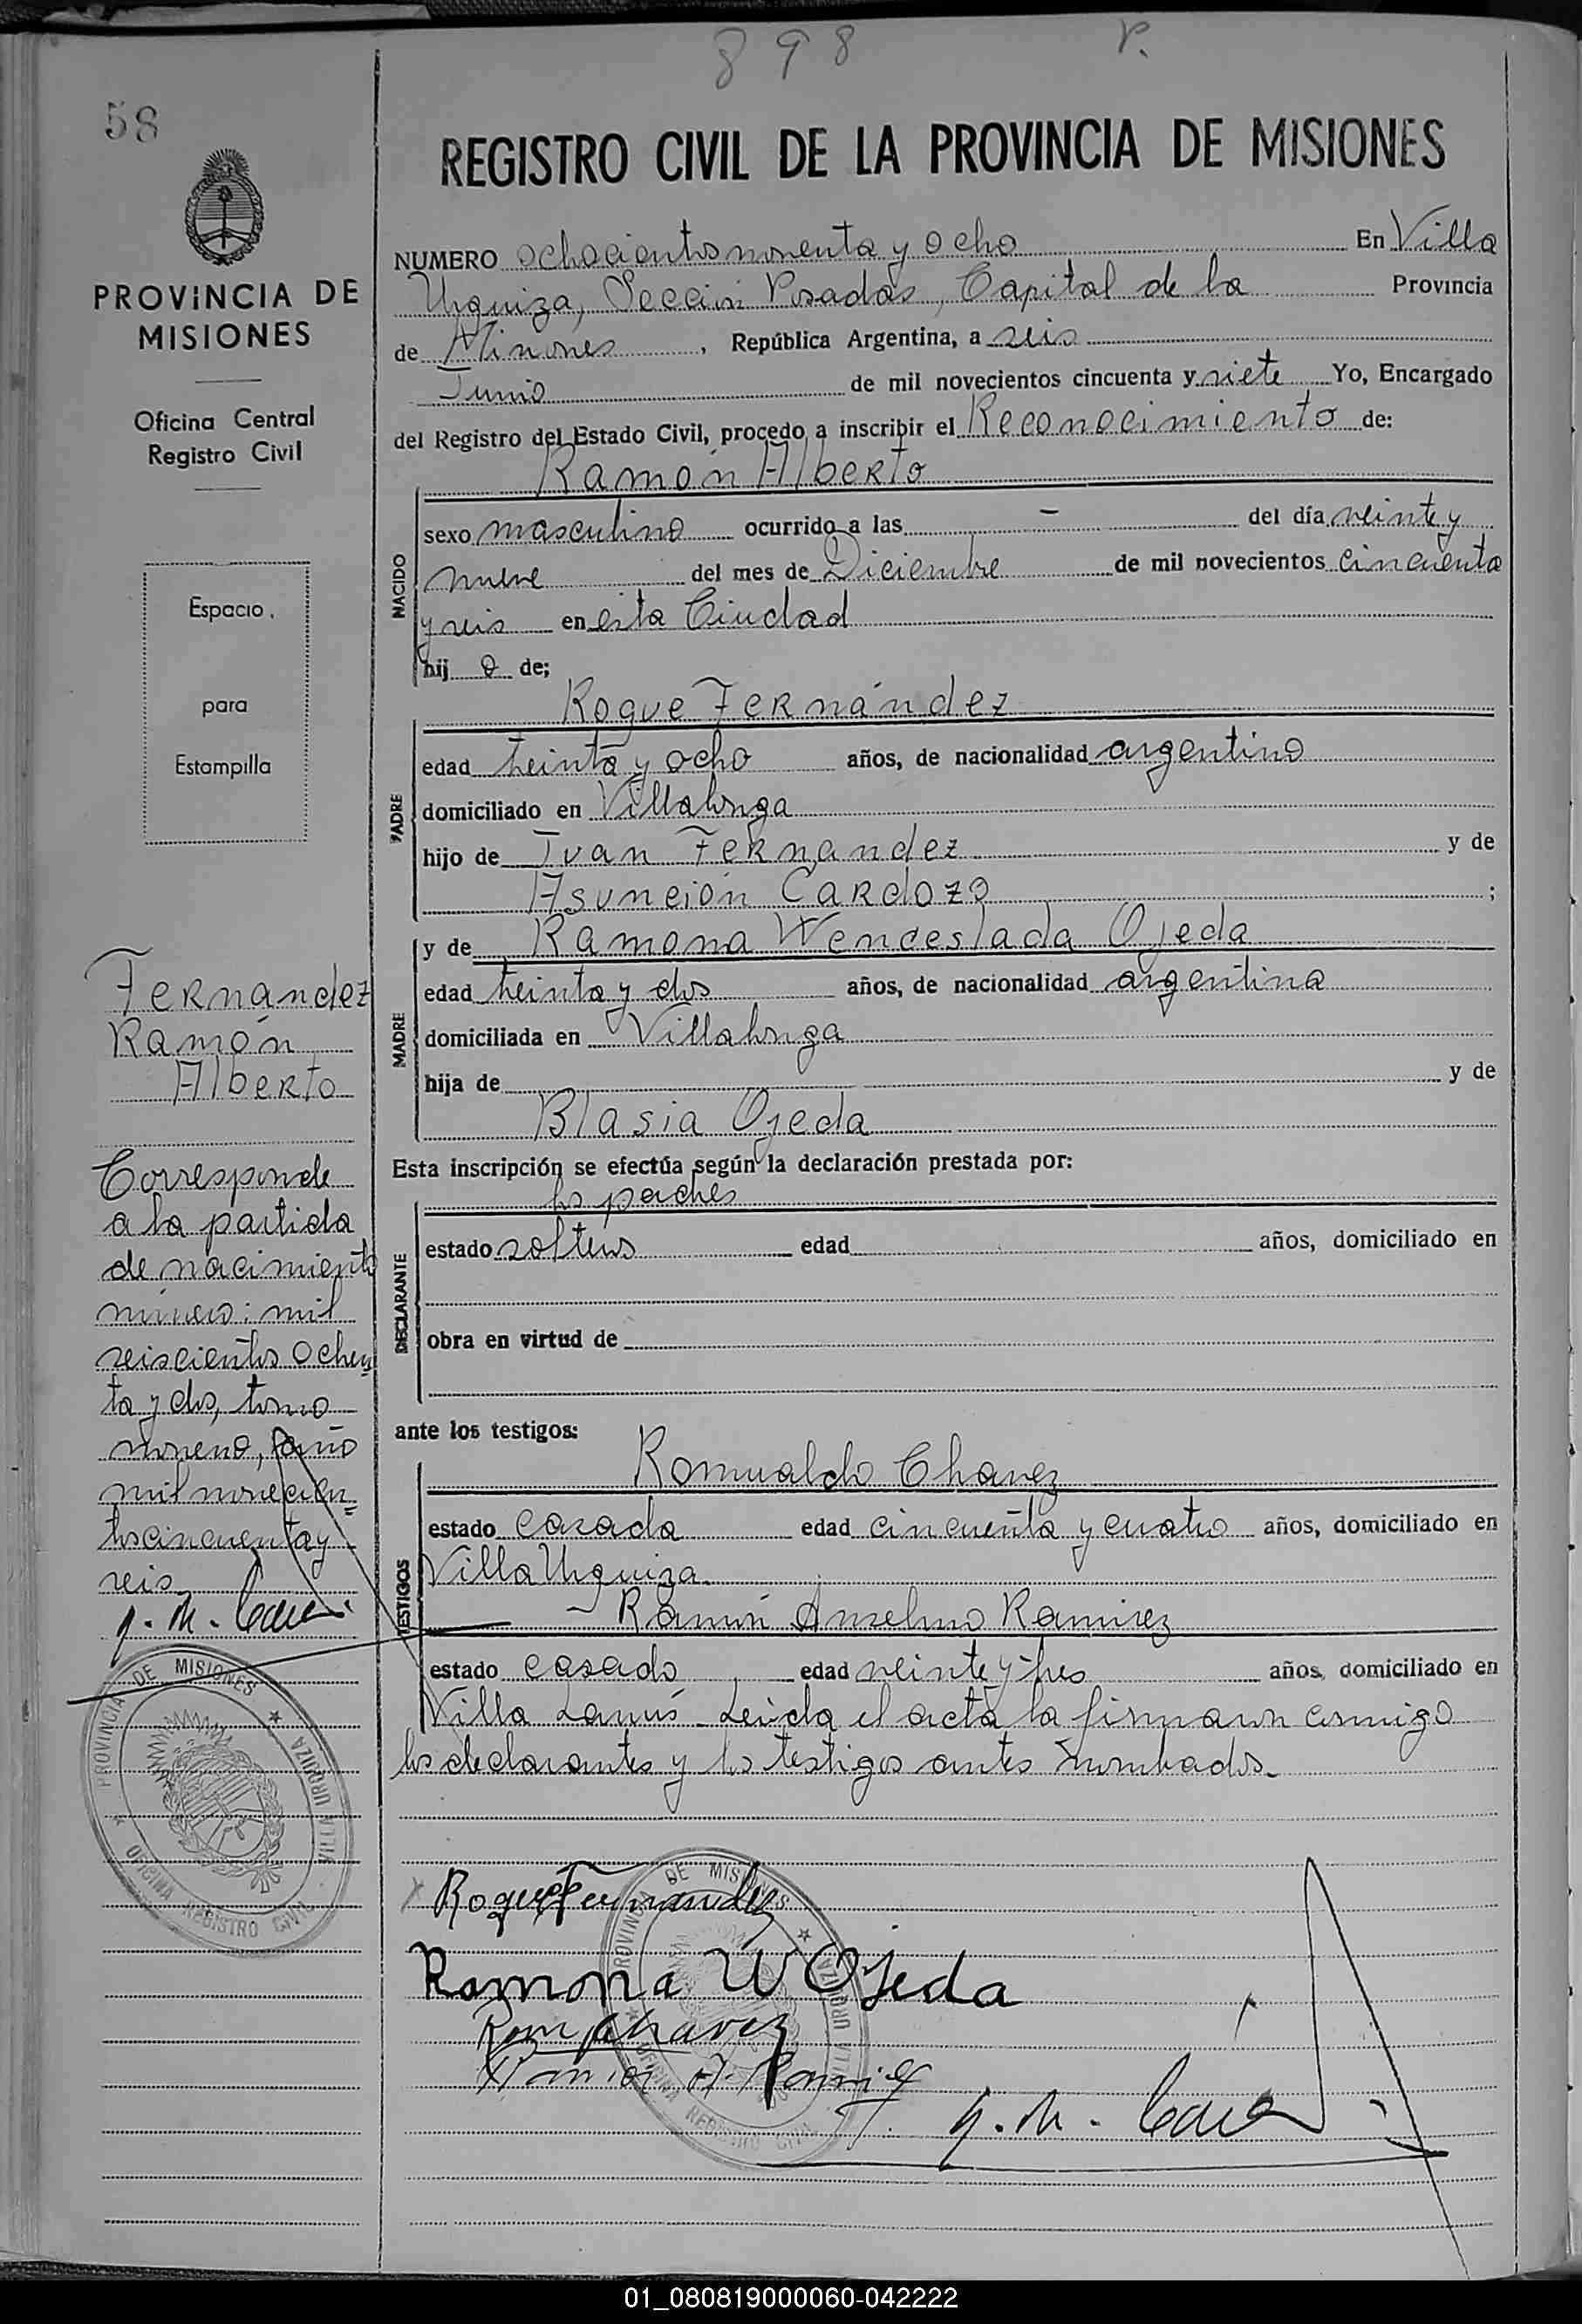 898
P.
58
REGISTRO CIVIL DE LA PROVINCIA DE MISIONES
PROVINCIA DE
MISIONES
Oficina Central
Registro Civil
Espacio
para
Estampilla
NUMERO ochocientos noventa y ocho En Villa
Urquiza, Sección Posadas, Capital de la Provincia
de Misiones, República Argentina, a seis
Junio de mil novecientos cincuenta y siete Yo, Encargado
del Registro del Estado Civil, procedo a inscribir el Reconocimiento de:
Ramón Alberto
NACIDO
sexo masculino ocurrido a las - del día veinte y
nueve del mes de Diciembre de mil novecientos cincuenta
y seis en esta Ciudad
hij o de;
Roque Fernández
PADRE
edad treinta y ocho años, de nacionalidad argentino
domiciliado en Villalonga
hijo de Juan Fernandez y de
Asunción Cardozo ;
MADRE
y de Ramona Wenceslada Ojeda
edad treinta y dos años, de nacionalidad argentina
domiciliada en Villalonga
hija de y de
Blasia Ojeda
Esta inscripción se efectúa según la declaración prestada por:
los padres
DECLARANTE
estado solteros edad años, domiciliado en
obra en virtud de
ante los testigos:
Romualdo Chavez
TESTIGOS
estado casado edad cincuenta y cuatro años, domiciliado en
Villa Urquiza.
- Ramón Anselmo Ramirez
estado casado edad veinte y tres años, domiciliado en
Villa Lanús - Leida el acta la firmaron conmigo
los declarantes y los testigos antes nombrados.-
Fernández
Ramón
Alberto
Corresponde
a la partida
de nacimiento
número: mil
seiscientos ochen
ta y dos, tomo
noveno, año
mil novecien=
tos cincuenta y
seis
PROVINCIA DE MISIONES
OFICINA REGISTRO CIVIL
VILLA URQUIZA
Roque Fernandez
Ramona W Ojeda
Rom Chavez
Ramón A. Ramirez
PROVINCIA DE MISIONES
OFICINA REGISTRO CIVIL
VILLA URQUIZA
01_080819000060-042222